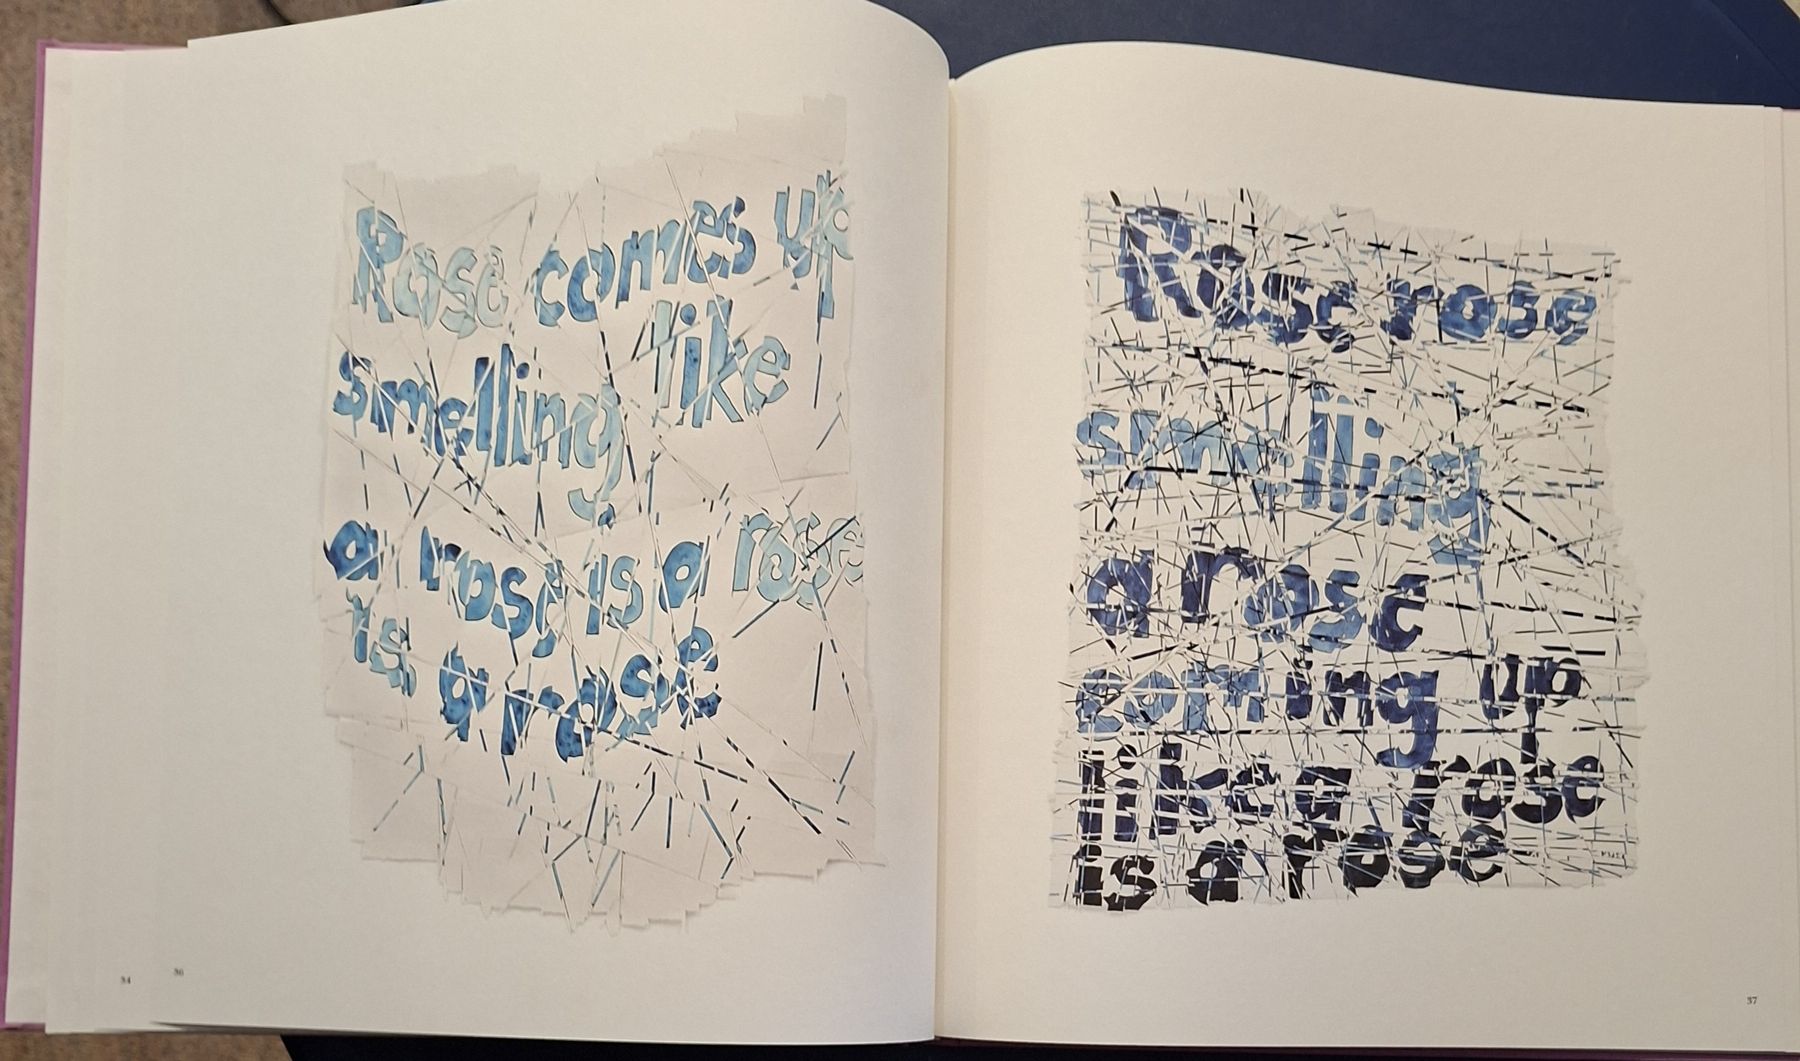 Rose comes up
smelling like
a rose is a rose
is a rose
34
36
Rose rose
smelling
a rose
coming up
like a rose
is a rose
37